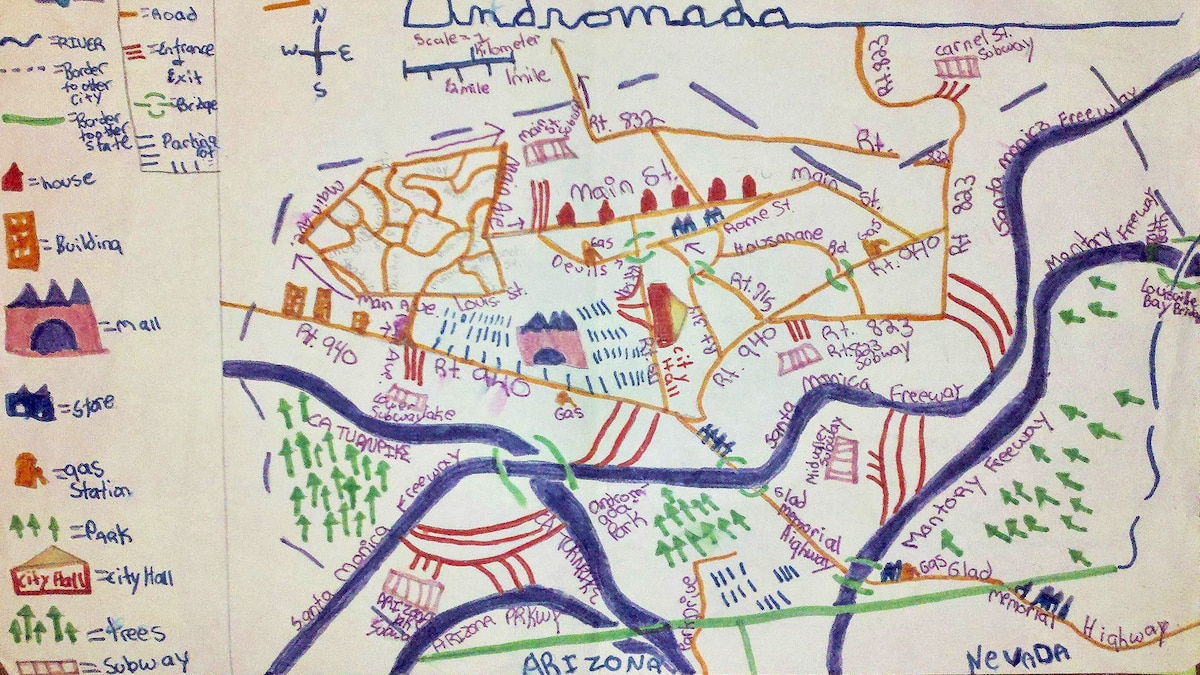 Andromada
N
W
E
S
Scale=1
Kilometer
1/2 mile
1 mile
=Road
=RIVER
=Entrance
&
Exit
=Border
to other
City
=Bridge
=Border
to other
state
Parking
lot
=house
=Building
=Mall
=Store
=gas
Station
=PARK
City Hall
=City Hall
=trees
=Subway
Rt. 823
Carnel St.
Subway
Main St.
Subway
Rt. 832
Rt.
832
Santa Monica Freeway
Main Ave
Main St.
Main
St.
Rt 823
Mantory Freeway
Rome St.
Gas
Gas
Devils
Rd
Rt. 940
Louisville
Bay Bridge
Man Ave.
Louis St.
Rt. 915
Rt. 940
Rt. 940
City
Hall
Rt. 940
Rt. 823
Rt. 823
Subway
Gas
Lower Lake
Subway
Santa Monica Freeway
CA TURNPIKE
Midvalley
Subway
Mantory Freeway
Park
Glad
Memorial
Highway
Santa Monica Freeway
CA TURNPIKE
Gas
Glad
Memorial Highway
ARIZONA
Subway
ARIZONA PRKWY
Park Drive
ARIZONA
NEVADA